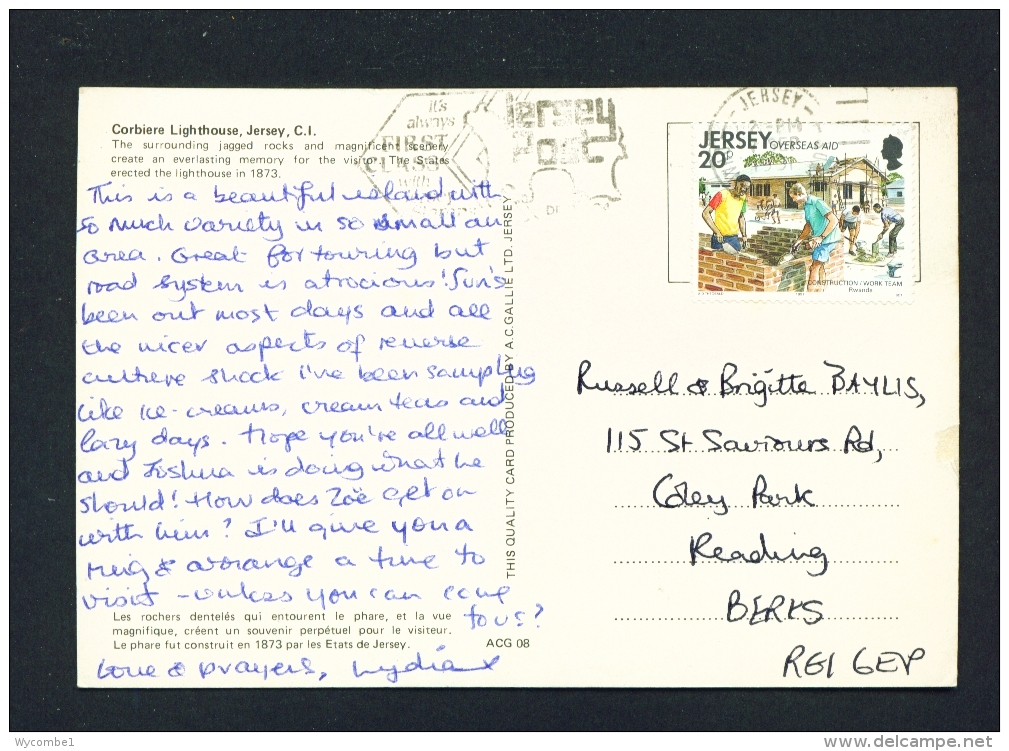 Corbiere Lighthouse, Jersey, C.I.
The surrounding jagged rocks and magnificent scenery
create an everlasting memory for the visitor. The States
erected the lighthouse in 1873.
This is a beautiful island with
so much variety in so small an
area. Great for touring but
road system is atrocious! Sun's
been out most days and all
the nicer aspects of reverse
culture shock i've been sampling
like ice-creams, cream teas and
lazy days. Hope you're all well
and Joshua is doing what he
should! How does Zoë get on
with him? I'll give you a
ring & arrange a time to
visit - unless you can come
to us?
Les rochers dentelés qui entourent le phare, et la vue
magnifique, créent un souvenir perpétuel pour le visiteur.
Le phare fut construit en 1873 par les Etats de Jersey.
ACG 08
Love & prayers, Lydia x
THIS QUALITY CARD PRODUCED BY A.C.GALLIE LTD. JERSEY
it's
always
FIRST
CLASS
with
Jersey
Post
JERSEY
PM
JERSEY
OVERSEAS AID
20p
CONSTRUCTION/WORK TEAM
Rwanda
Russell & Brigitte BAYLIS,
115 St Saviours Rd,
Coley Park
Reading
BERKS
RG1 6EP
Wycombe1
www.delcampe.net